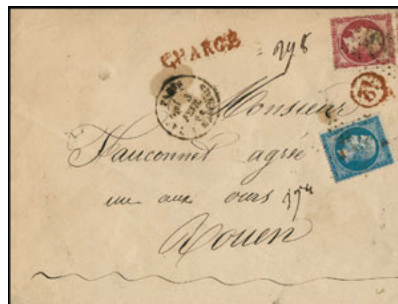 CHARGÉ
298
PARIS
Monsieur
Fauconnet agréé
rue aux ours 37
Rouen